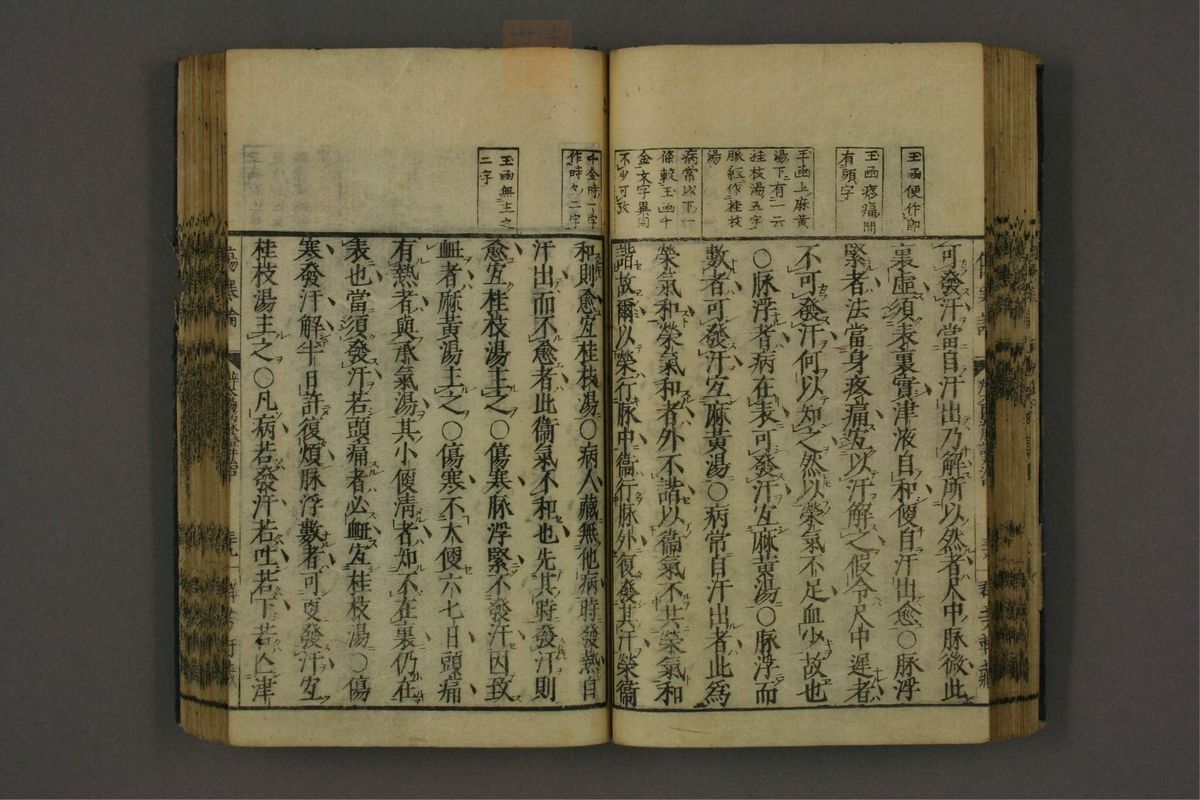 玉函便作即
玉函疼痛間
有頭字
玉函上麻黃
湯下有一云
桂枝湯五字
脈經作桂枝
湯
病常以下一
條較玉函千
金文字異同
不少可攷
可發汗當自汗出乃解所以然者尺中脉微此
裏虛須表裏實津液自和便自汗出愈○脉浮
緊者法當身疼痛宜以汗解之假令尺中遲者
不可發汗何以知之然以榮氣不足血少故也
○脉浮者病在表可發汗宜麻黃湯○脉浮而
數者可發汗宜麻黃湯○病常自汗出者此爲
榮氣和榮氣和者外不諧以衞氣不共榮氣和
諧故爾以榮行脉中衞行脉外復發其汗榮衞
千金時一字
作時々二字
玉函無主之
二字
和則愈宜桂枝湯○病人藏無他病時發熱自
汗出而不愈者此衞氣不和也先其時發汗則
愈宜桂枝湯主之○傷寒脉浮緊不發汗因致
衄者麻黃湯主之○傷寒不大便六七日頭痛
有熱者與承氣湯其小便淸者知不在裏仍在
表也當須發汗若頭痛者必衄宜桂枝湯○傷
寒發汗解半日許復煩脉浮數者可更發汗宜
桂枝湯主之○凡病若發汗若吐若下若亾津
傷寒論